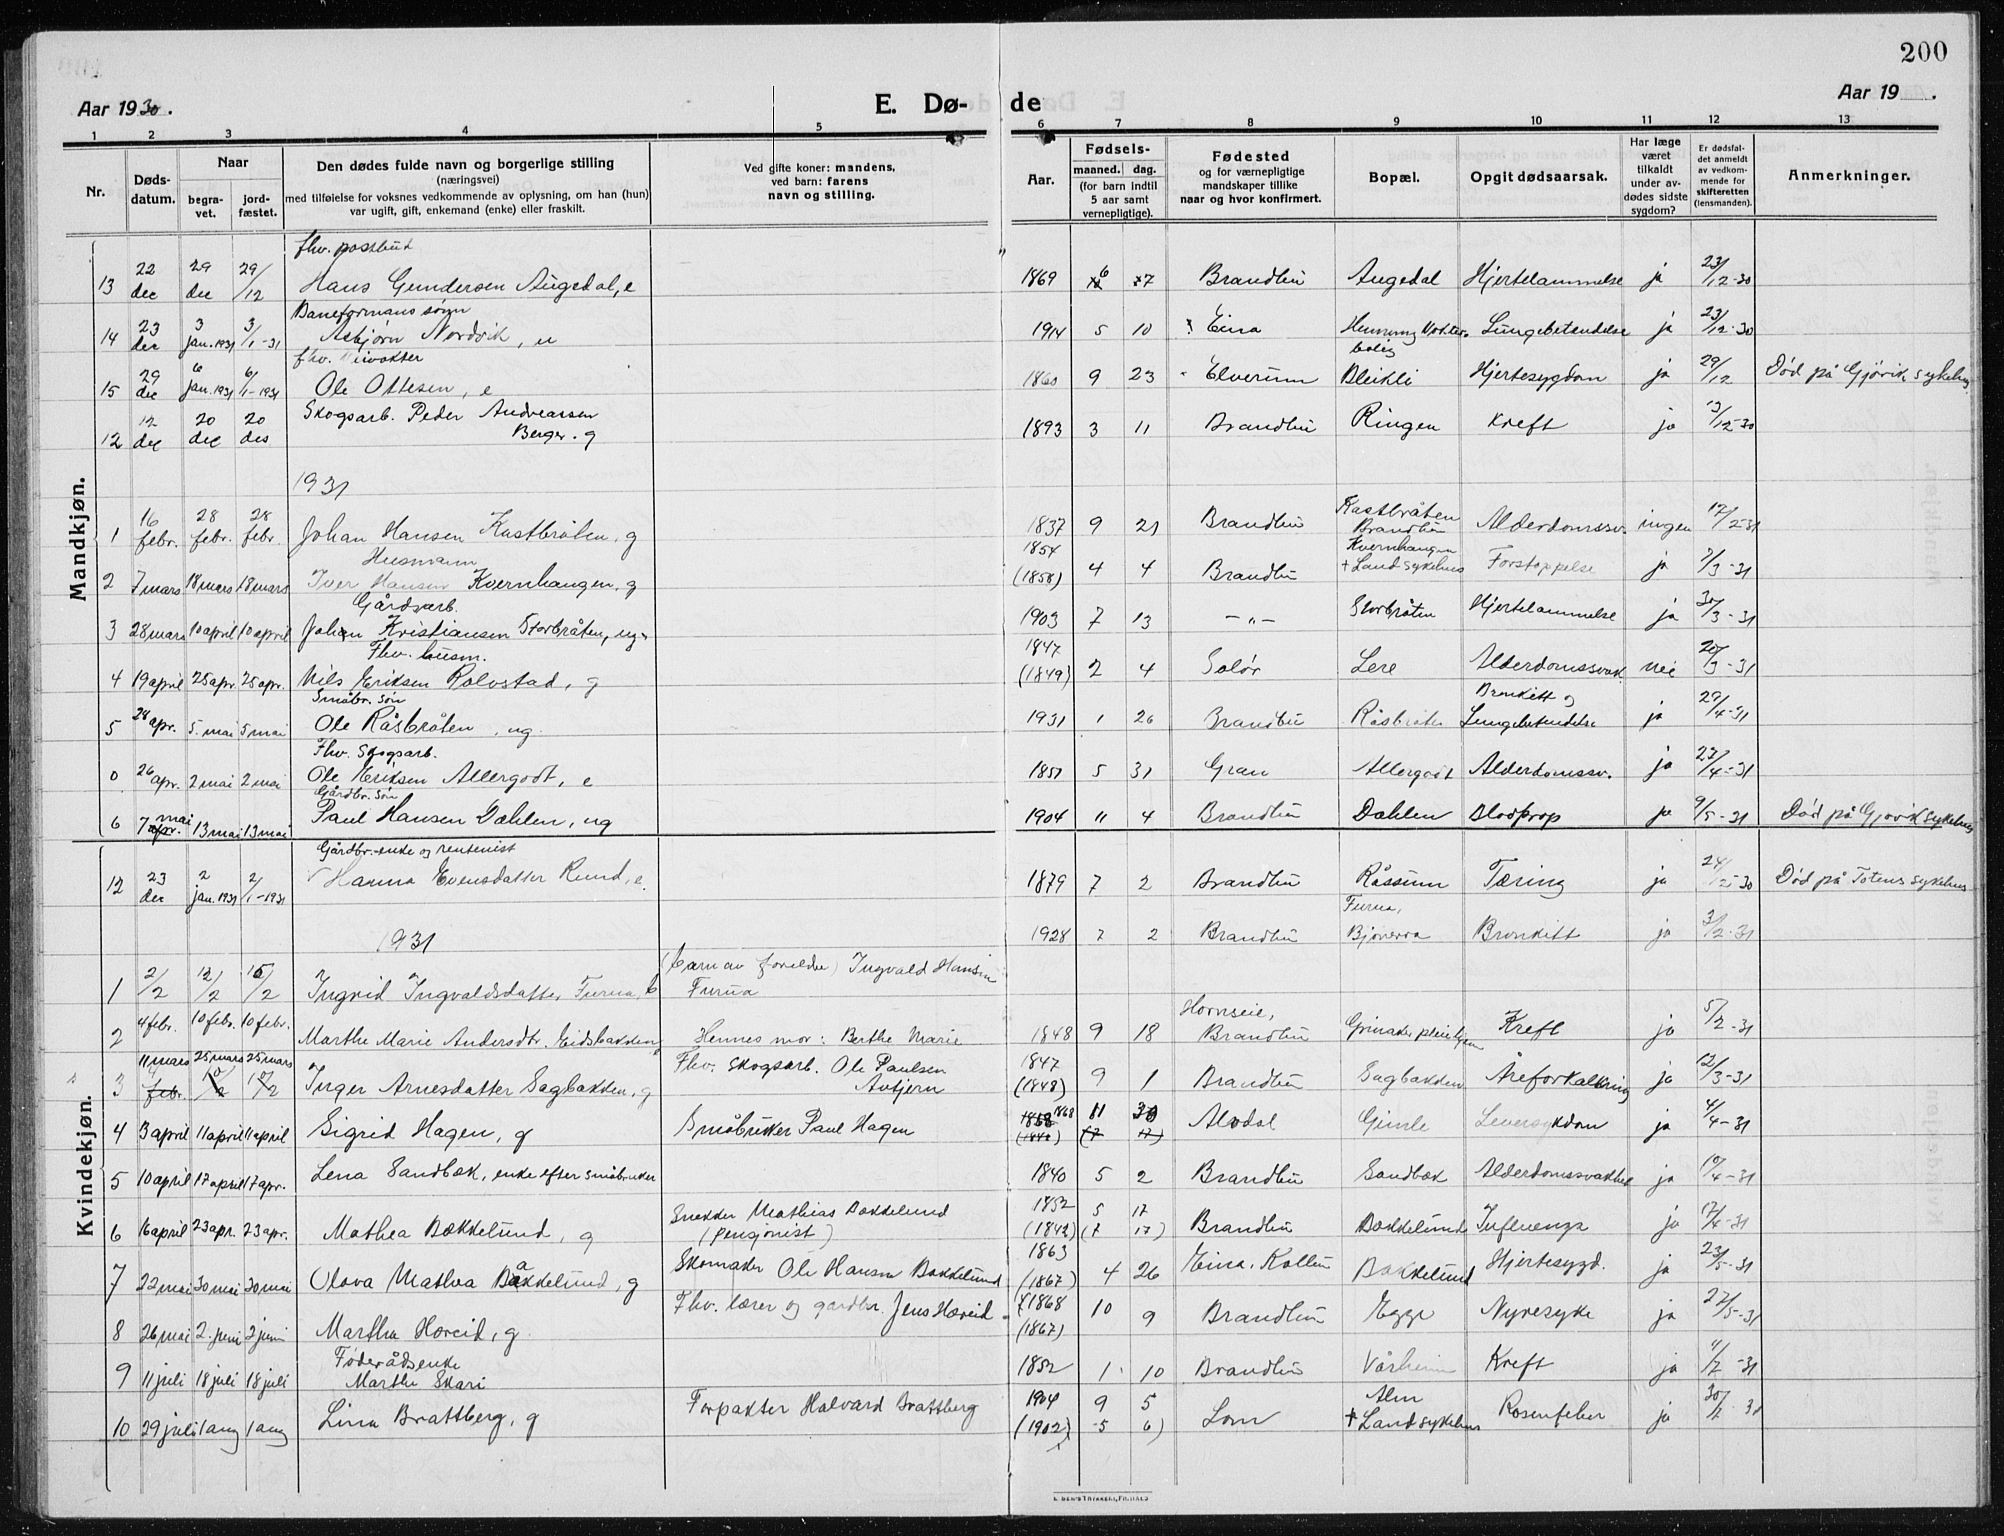 200
Aar 1930.
E. Dø-
de
Aar 19 .
1 2 3 4 5 6 7 8 9 10 11 12 13
Nr.
Døds-
datum.
Naar
begra-
vet.
jord-
fæstet.
Den dødes fulde navn og borgerlige stilling
(næringsvei)
med tilføielse for voksnes vedkommende av oplysning, om han (hun)
var ugift, gift, enkemand (enke) eller fraskilt.
Ved gifte koner: mandens,
ved barn: farens
navn og stilling.
Aar.
Fødsels-
maaned. dag.
(for barn indtil
5 aar samt
vernepligtige).
Fødested
og for værnepligtige
mandskaper tillike
naar og hvor konfirmert.
Bopæl.
Opgit dødsaarsak.
Har læge
været
tilkaldt
under av-
dødes sidste
sygdom?
Er dødsfal-
det anmeldt
av vedkom-
mende for
skifteretten
(lensmanden).
Anmerkninger.
Mandkjøn.
fhv. postbud
13 22 dec 29 dec 29/12 Hans Gundersen Augedal, e 1869 6 7 Brandbu Augedal Hjertelammelse ja 23/12-30
Baneformans søn
14 23 dec 3 jan. 1931 3/1-31 Asbjørn Nordvik, u 1914 5 10 Eina Lungebetendelse ja 23/12-30
fhv.
15 29 dec 6 jan. 1931 6/1-1931 Ole Ottesen, e 1860 9 23 Elverum Bleikli Hjertesygdom ja 29/12 Død på Gjøvik sykehus
12 12 dec 20 dec 20 des Skogsarb. Peder Andreassen
Berger. g 1893 3 11 Brandbu Ringen Kreft ja 13/12-30
1931
1 16 febr. 28 febr. 28 febr Johan Hansen Kastbråten, g 1837 9 21 Brandbu Kastbråten Brandbu Alderdomssv. ingen 17/2-31
Husmann
2 7 mars 18 mars 18 mars Iver Hansen Kvernhaugen, g 1854 (1858) 4 4 Brandbu Kvernhaugen + Landsykehus Forstoppelse ja 7/3-31
Gårdsarb.
3 28 mars 10 april 10 april Johan Kristiansen Storbråten, ug. 1903 7 13 -"- Storbråten Hjertelammelse ja 30/3-31
Fhv. husm.
4 19 april 25 apr. 25 apr. Nils Eriksen Rolvstad, g 1847 (1849) 2 4 Solør Lere Alderdomssvak. nei 20/3-31
Småbr. søn
5 28 apr. 5. mai 5 mai Ole Råsbråten, ug. 1931 1 26 Brandbu Råsbråten Bronkitt og Lungebetendelse ja 29/4-31
Fhv. Skogsarb.
0 26 apr. 2 mai 2 mai Ole Eriksen Allergodt, e 1851 5 31 Gran Allergodt Alderdomssv. ja 27/4-31
Gårdbr. søn
6 7 mai apr. 13 mai 13 mai Paul Hansen Dæhlen, ug 1904 11 4 Brandbu Dæhlen Blodprop ja 9/5-31 Død på Gjøvik sykehus
Kvindekjøn.
Gårdbr.-enke og rentenist
12 23 dec 2 jan. 1931 2/1-1931 Hanna Evensdatter Rund, e. 1879 7 2 Brandbu Råssum Tæring ja 24/12-30 Død på Totens sykehus
1931
1928 7 2 Brandbu Furua, Bjoneroa Bronkitt ja 3/2-31
1 2/2 12/2 15/2 Ingrid Ingvaldsdatter Furua, b (barn av foreldre) Ingvald Hansen Furua
2 4 febr. 10 febr. 10 febr. Marthe Marie Andersdtr. Eidsbakken, Hennes mor: Berthe Marie 1848 9 18 Hornseie, Brandbu Grinaker pleiehjem Kreft ja 5/2-31
3 11 mars febr. 25 mars 25 mars Inger Arnesdatter Sagbakken, g Fhv. Skogsarb. Ole Paulsen Avtjern 1847 (1848) 9 1 Brandbu Sagbakken Åreforkalkning ja 12/3-31
4 3 april 11 april 11 april Sigrid Hagen, g Småbruker Paul Hagen 1858 1868 (1842) 11 30 (7 17) Alvdal Gimle Leversykdom ja 4/4-31
5 10 april 17 april 17 apr. Lena Sandbæk, enke efter småbruker 1840 5 2 Brandbu Sandbæk Alderdomssvakhet ja 10/4-31
6 16 april 23 apr. 23 apr. Mathea Bækkelund, g Snekker Mathias Bækkelund (pensjonist) 1852 (1842) 5 17 (7 17) Brandbu Bækkelund Influenza ja 17/4-31
7 22 mai 30 mai 30 mai Olava Mathea Bakkelund, g Skomaker Ole Hansen Bakkelund 1863 (1867) 4 26 Eina, Kolbu Bakkelund Hjertesygd. ja 23/5-31
8 26 mai 2. juni 2 juni Martha Horeid, g. Fhv. lærer og gardbr. Jens Horeid 1868 (1867) 10 9 Brandbu Egge Nyresyke ja 27/5-31
Føderådsenke
9 11 juli 18 juli 18 juli Marthe Skari 1852 1 10 Brandbu Vårheim Kreft ja 11/7-31
10 29 juli 1 aug 1 aug Lina Brattberg, g Forpakter Halvard Brattberg 1904 (1902) 9 5 (5 6) Lom Alm + Landsykehus Rosenfeber ja 30/7-31